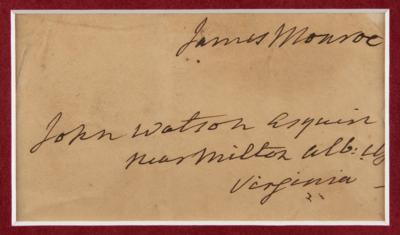 James Monroe
John Watson Esquire
near Milton Alb: Cy
Virginia